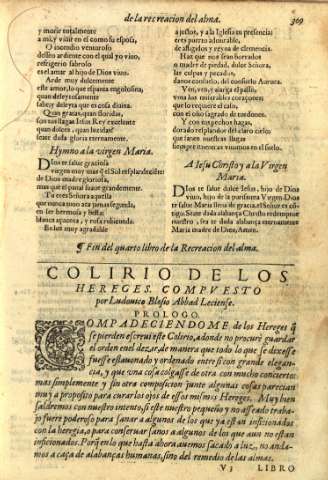 de la recreacion del alma.
309
y morir totalmente
a mi, y viuir en el como su esposa,
O incendio venturoso
desseo ardiente con el qual yo viuo,
refrigerio sabroso
es el amar al hijo de Dios viuo,
Arde muy dulcemente
este amor, lo que espanta
quan deleytosamente
sabe, y deleyta que es cosa diuina.
Quan gratas, quan floridas,
son tus llagas Iesus Rey excelente
quan dolces, quan luzidas!
sente dada gloria eternamente.
Hymno a la virgen Maria.
DIos te salue graciosa
virgen muy mas q̃ el Sol resplandeciente:
de Dios madre gloriosa,
mas que el panal suaue grandemente.
Tu eres Señora aquella
que nunca tuuo acà pena segunda,
en ser hermosa y bella:
blanca açucena, y rosa rubicunda.
Eres muy agradable
a justos, y a la Iglesia tu presencia;
eres puerto admirable,
de afligidos y reyna de clemencia.
Haz que nos sean borrados
o madre de piedad, dulce Señora,
las culpas y pecados,
danos consuelo, del consuelo Aurora.
Vn, ven, y alarga el passo,
visita los miserables coraçones:
que lo requiere el caso,
con el olio sagrado de tus dones.
Y con tus pechos hazes,
dorado resplandor del claro cielo:
que sanes nuestras llagas
siempre mientras viuimos en el suelo.
A Iesu Christo y a la Virgen
Maria.
DIos te salue dulce Iesus, hijo de Dios
viuo, hijo de la purissima Virgen Dios
te salue Maria llena de gracia, el Señor es cõ-
tigo. Seate dada alabança Christo redemptor
nuestro, sea te dada alabança eternamente
Maria madre de Dios, Amen.
¶ Fin del quarto libro de la Recreacion del alma.
COLIRIO DE LOS
HEREGES. COMPVESTO
por Ludouico Blosio Abbad Leciense.
PROLOGO.
COMPADECIENDOME de los Hereges q̃
se pierden escreui este Colirio, adonde no procurè guardar
el orden en el dezir, de manera que todo lo que se dixesse
fuesse estauonado y ordenado entre si con grande elegan-
cia, y que vna cosa colgasse de otra con mucho concierto:
mas simplemente y sin otra composicion junte algunas cosas parecian
muy a proposito para curar los ojos de essos mismos Hereges. Muy bien
saldremos con nuestro intento, si este nuestro pequeño y no asseado traba-
jo fuere poderoso para sanar a algunos de los que ya estan inficionados
con la heregia, o para conseruar sanos a algunos de los que aun no estan
inficionados. Porq̃ en lo que hasta ahora auemos sacado a luz, no anda-
mos a caça de alabanças humanas, sino del remedio de las almas.
V 3
LIBRO